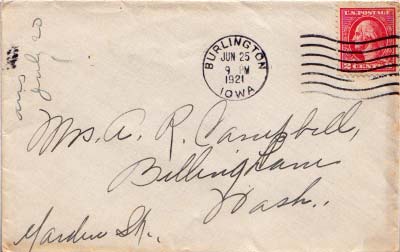 BURLINGTON
JUN 25
9 PM
1921
IOWA
U.S. POSTAGE
2 CENTS 2
ans July 20
Mrs. A. R. Campbell,
Billingham
Wash.
Marden St.,